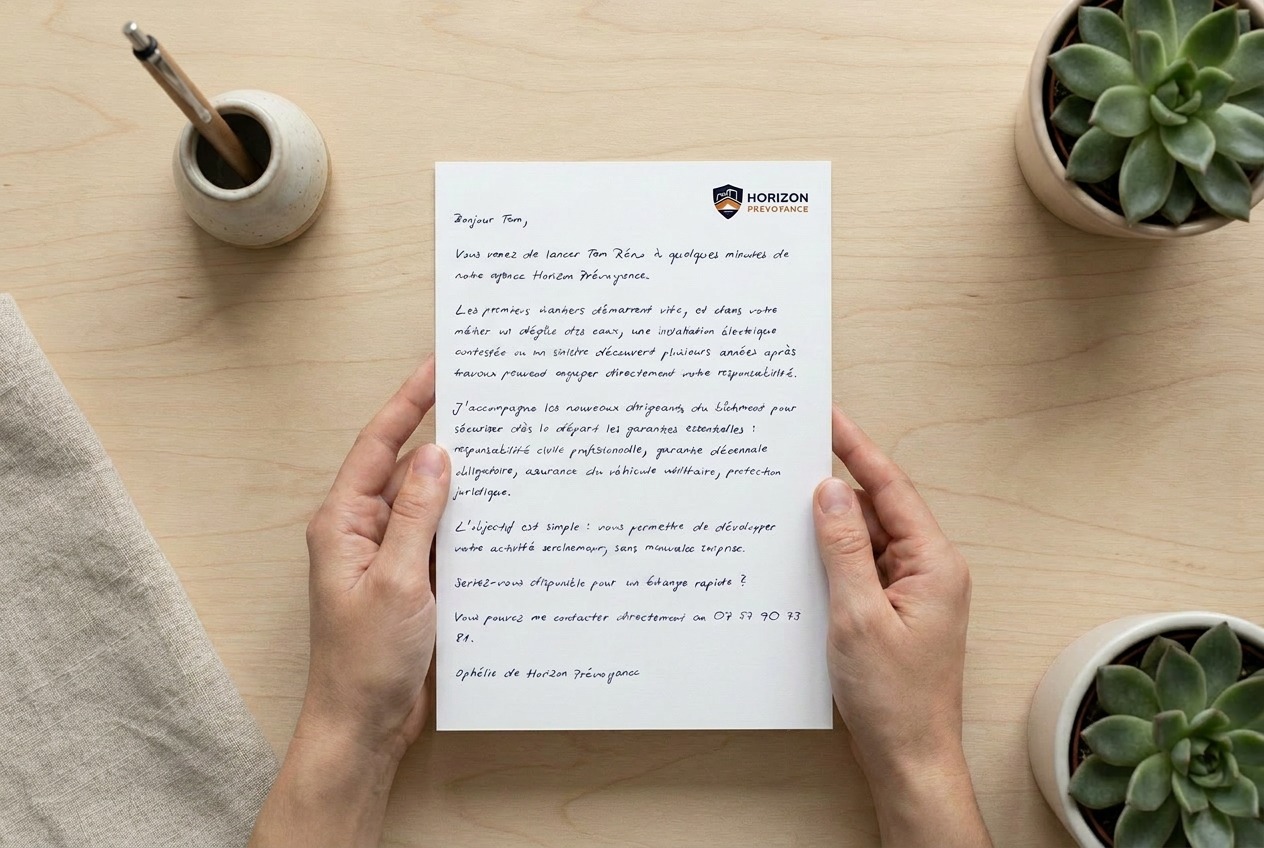 HORIZON
PREVOFANCE
Bonjour Tom,
Vous venez de lancer Tom Réno à quelques minutes de
notre agence Horizon Prévoyance.
Les premiers chantiers démarrent vite, et dans votre
métier un dégât des eaux, une installation électrique
contestée ou un sinistre découvert plusieurs années après
travaux peuvent engager directement votre responsabilité.
J'accompagne les nouveaux dirigeants du bâtiment pour
sécuriser dès le départ les garanties essentielles :
responsabilité civile professionnelle, garantie décennale
obligatoire, assurance du véhicule utilitaire, protection
juridique.
L'objectif est simple : vous permettre de développer
votre activité sereinement, sans mauvaise surprise.
Seriez-vous disponible pour un échange rapide ?
Vous pouvez me contacter directement au 07 57 90 73
81.
Ophélie de Horizon Prévoyance